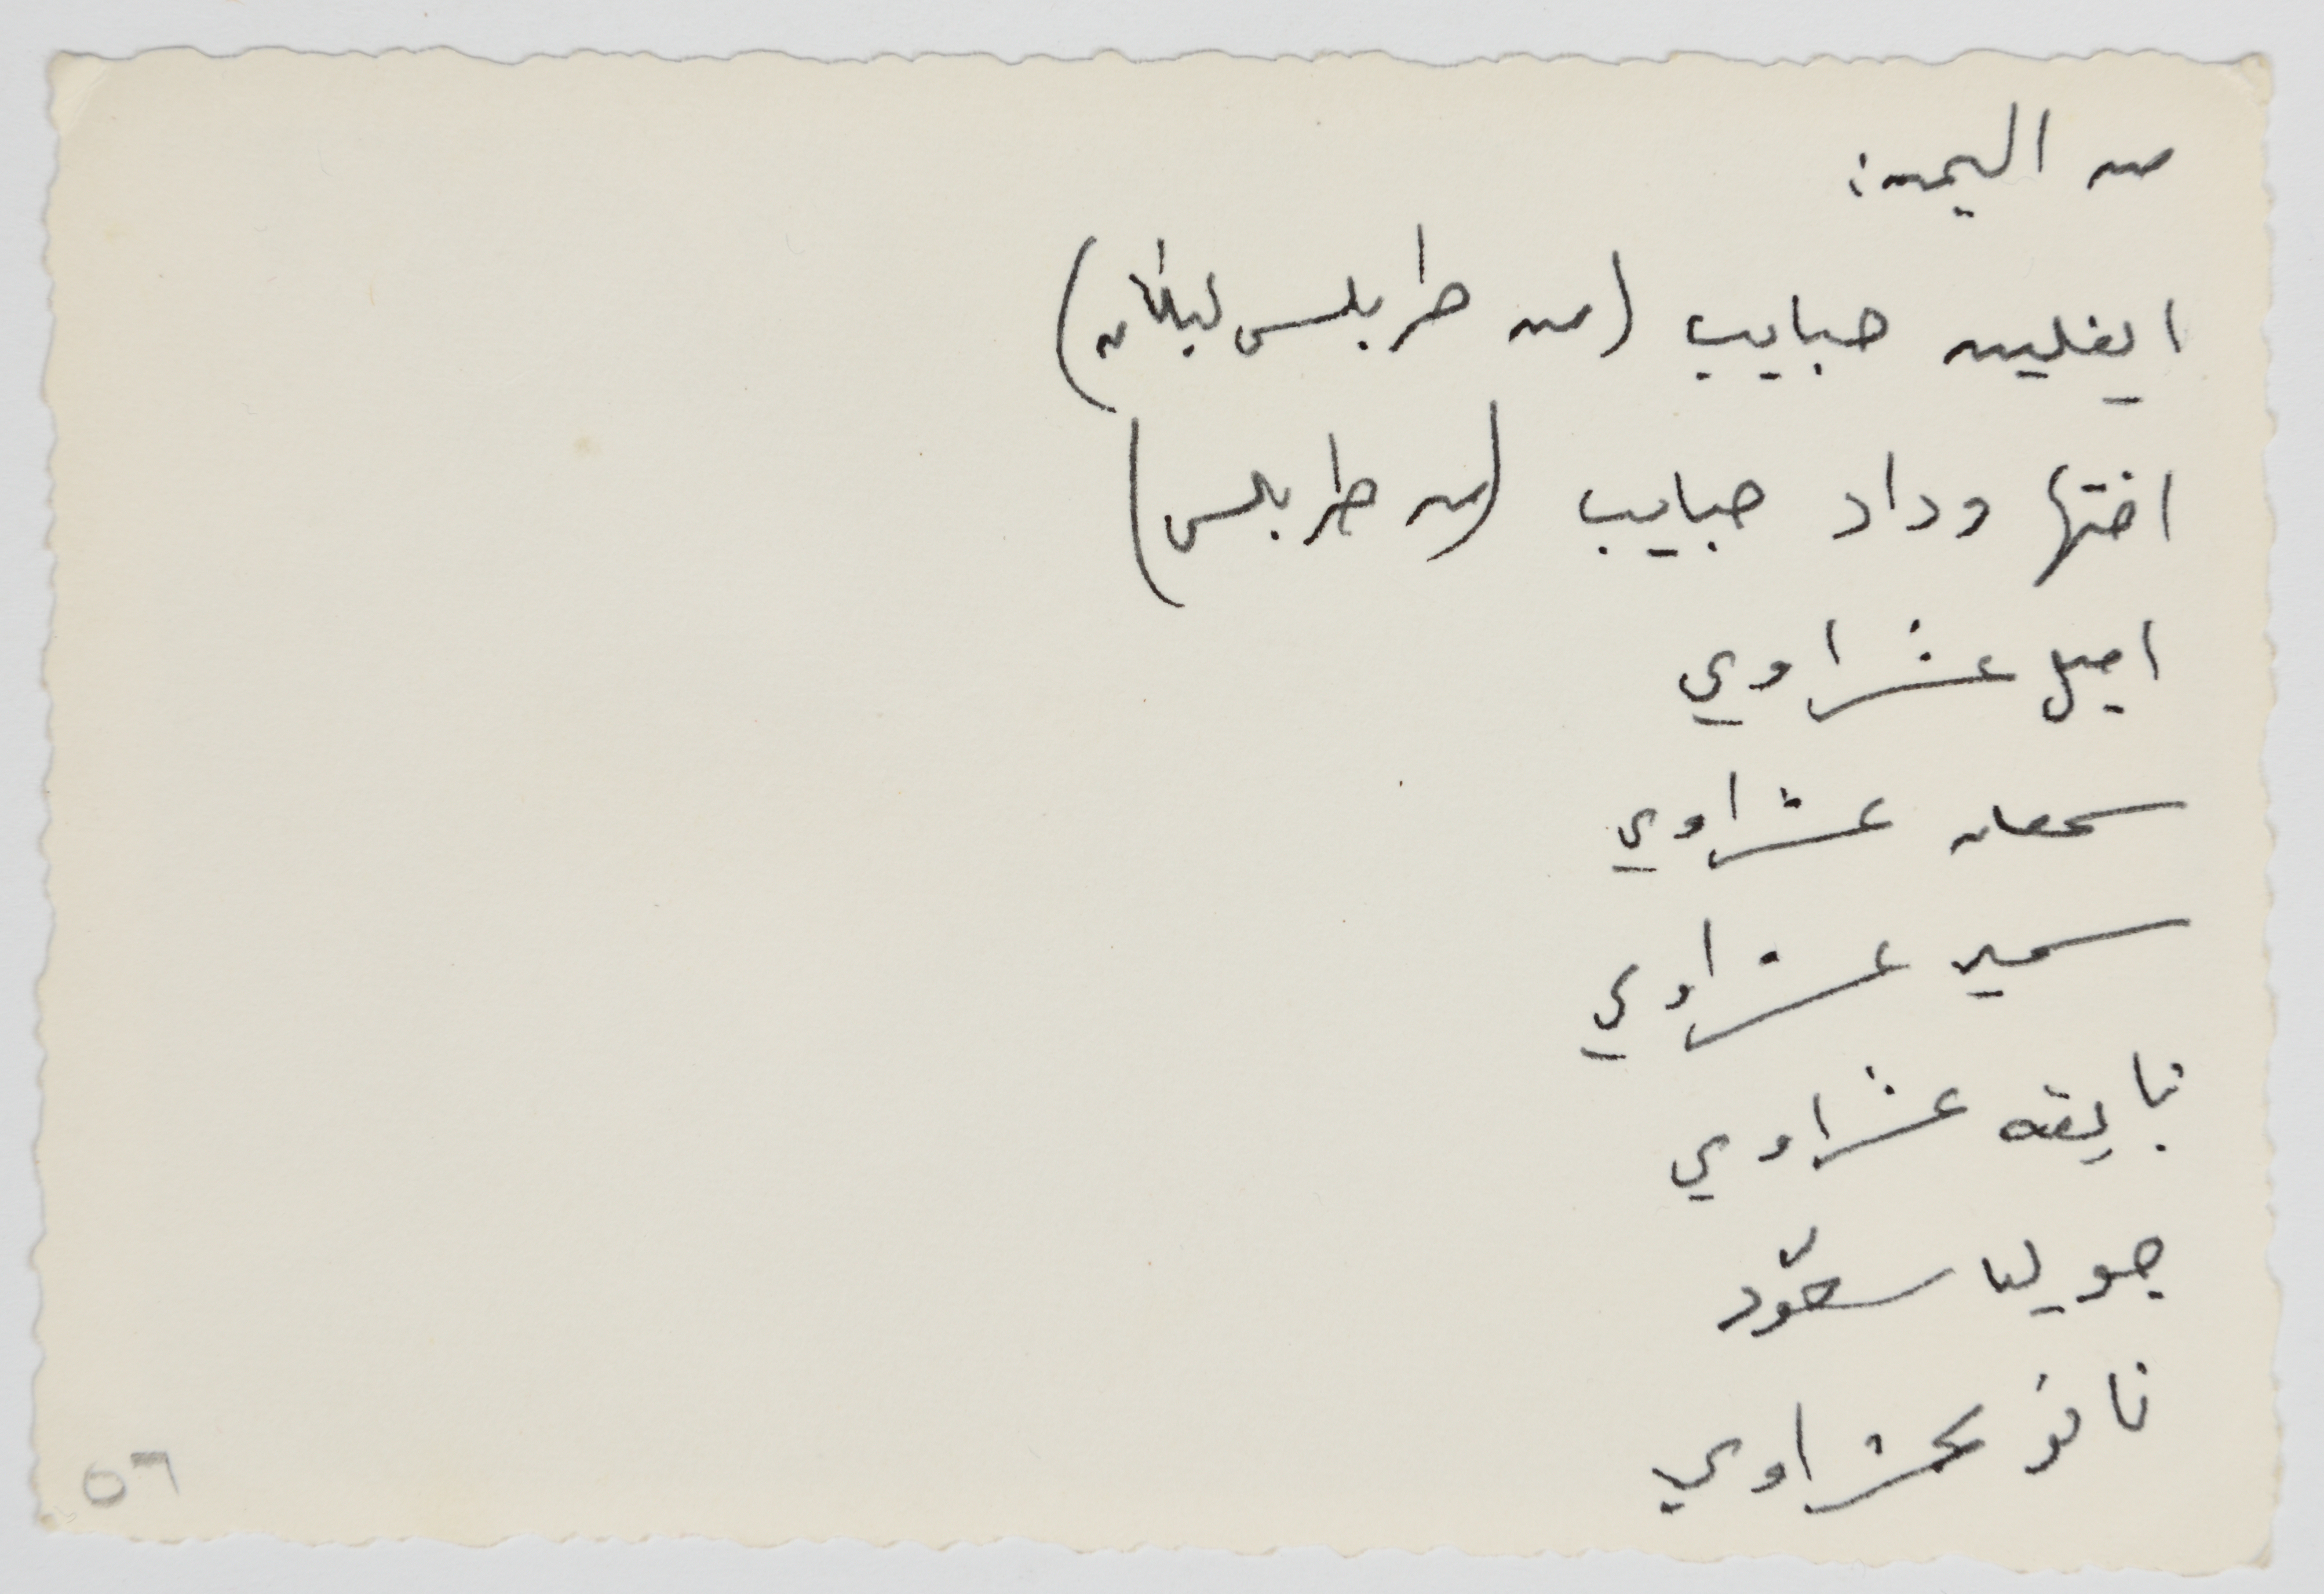 من اليمين:
ايفلين حبايب (من طرابلس لبنان)
اختها وداد حبايب (من طرابلس)
اميل عشراوي
سمعان عشراوي
سمير عشراوي
نايفه عشراوي
جوليا سحّود
فائز عشراوي
٥٦